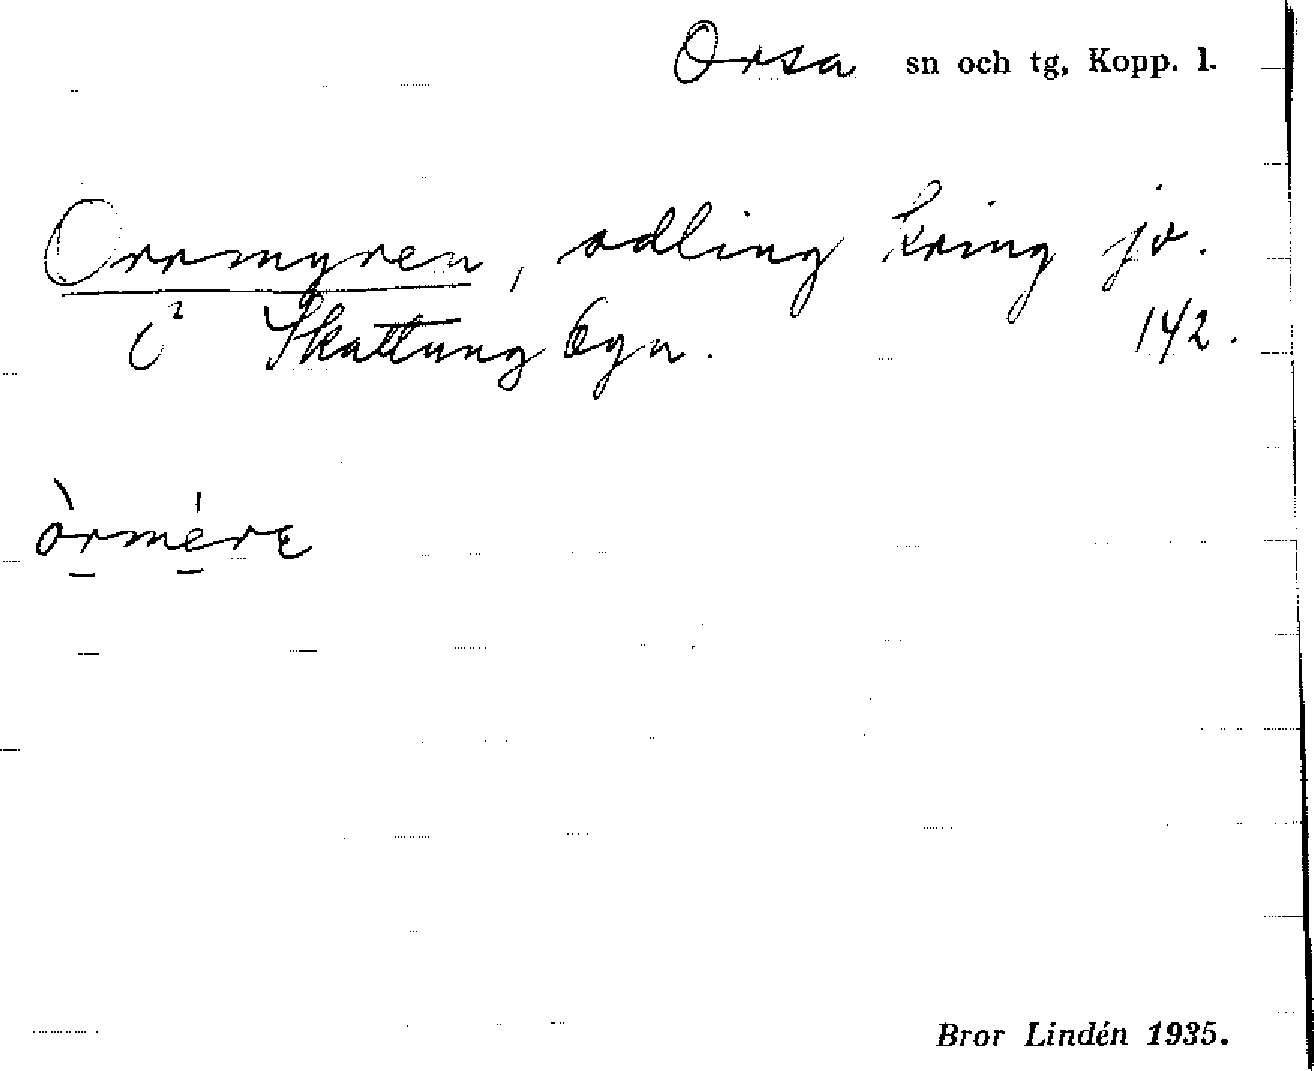 Orsa sn och tg, Kopp. l.
Orrmyren, odling kring jv.
i Skattungbyn. 142.
òrmére
Bror Lindén 1935.